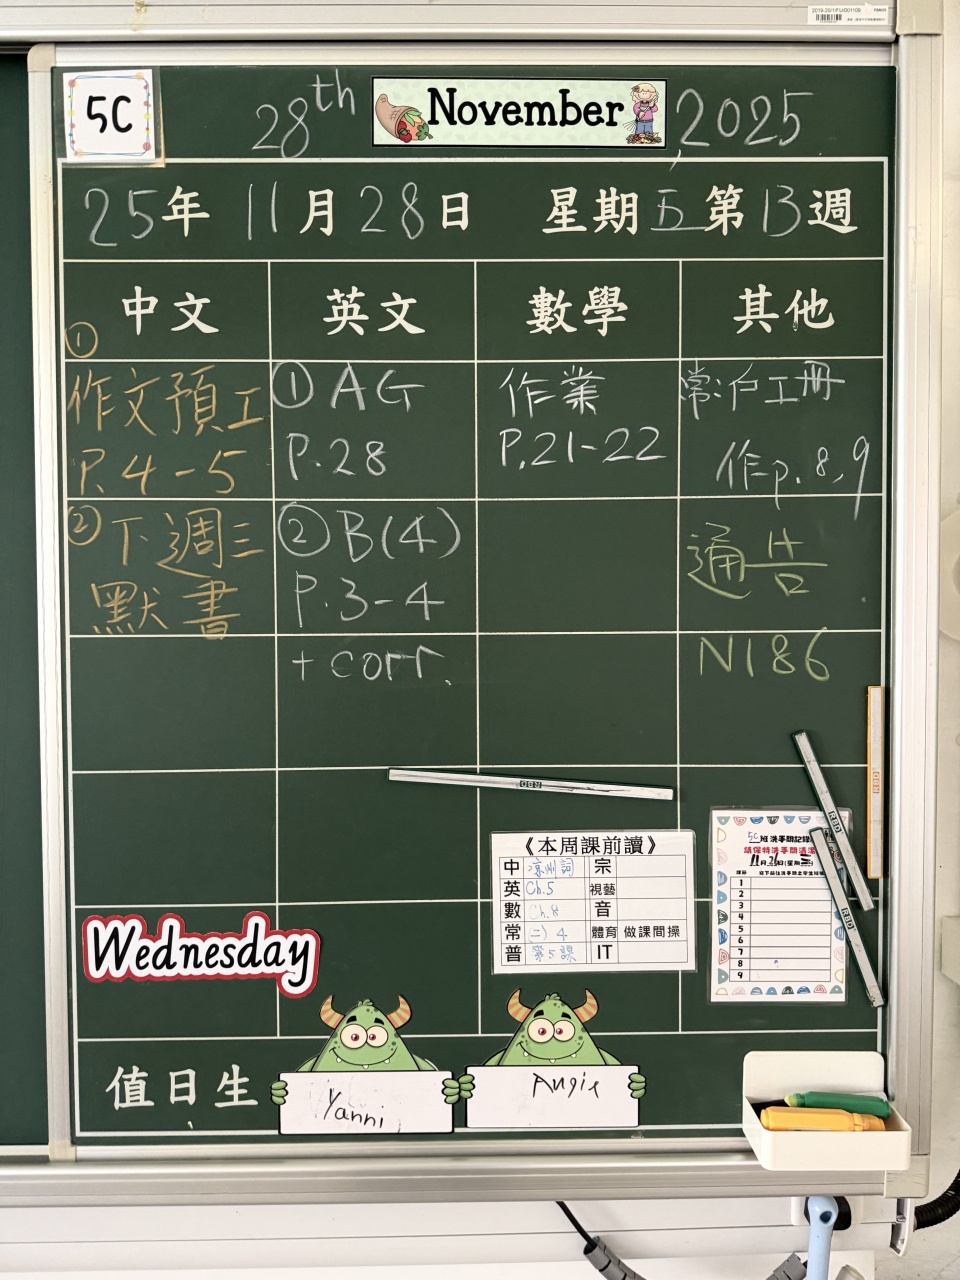 2019-20/1/FU/001109
5C
28th November, 2025
25年 11月28日 星期五第13週
中文 英文 數學 其他
①
作文預工
P.4-5
②下週三
默書
①AG
P.28
②B(4)
P.3-4
+ corr.
作業
P.21-22
常:戶工冊
作p.8,9
通告
N186
RBD
RBD
RBD
RBD
《本周課前讀》
中 涼州詞 宗
英 Ch.5 視藝
數 Ch.8 音
常 二)4 體育 做課間操
普 第5課 IT
5C班洗手間記錄
請保持洗手間清潔
1
2
3
4
5
6
7
8
9
Wednesday
值日生 Yanni Angie